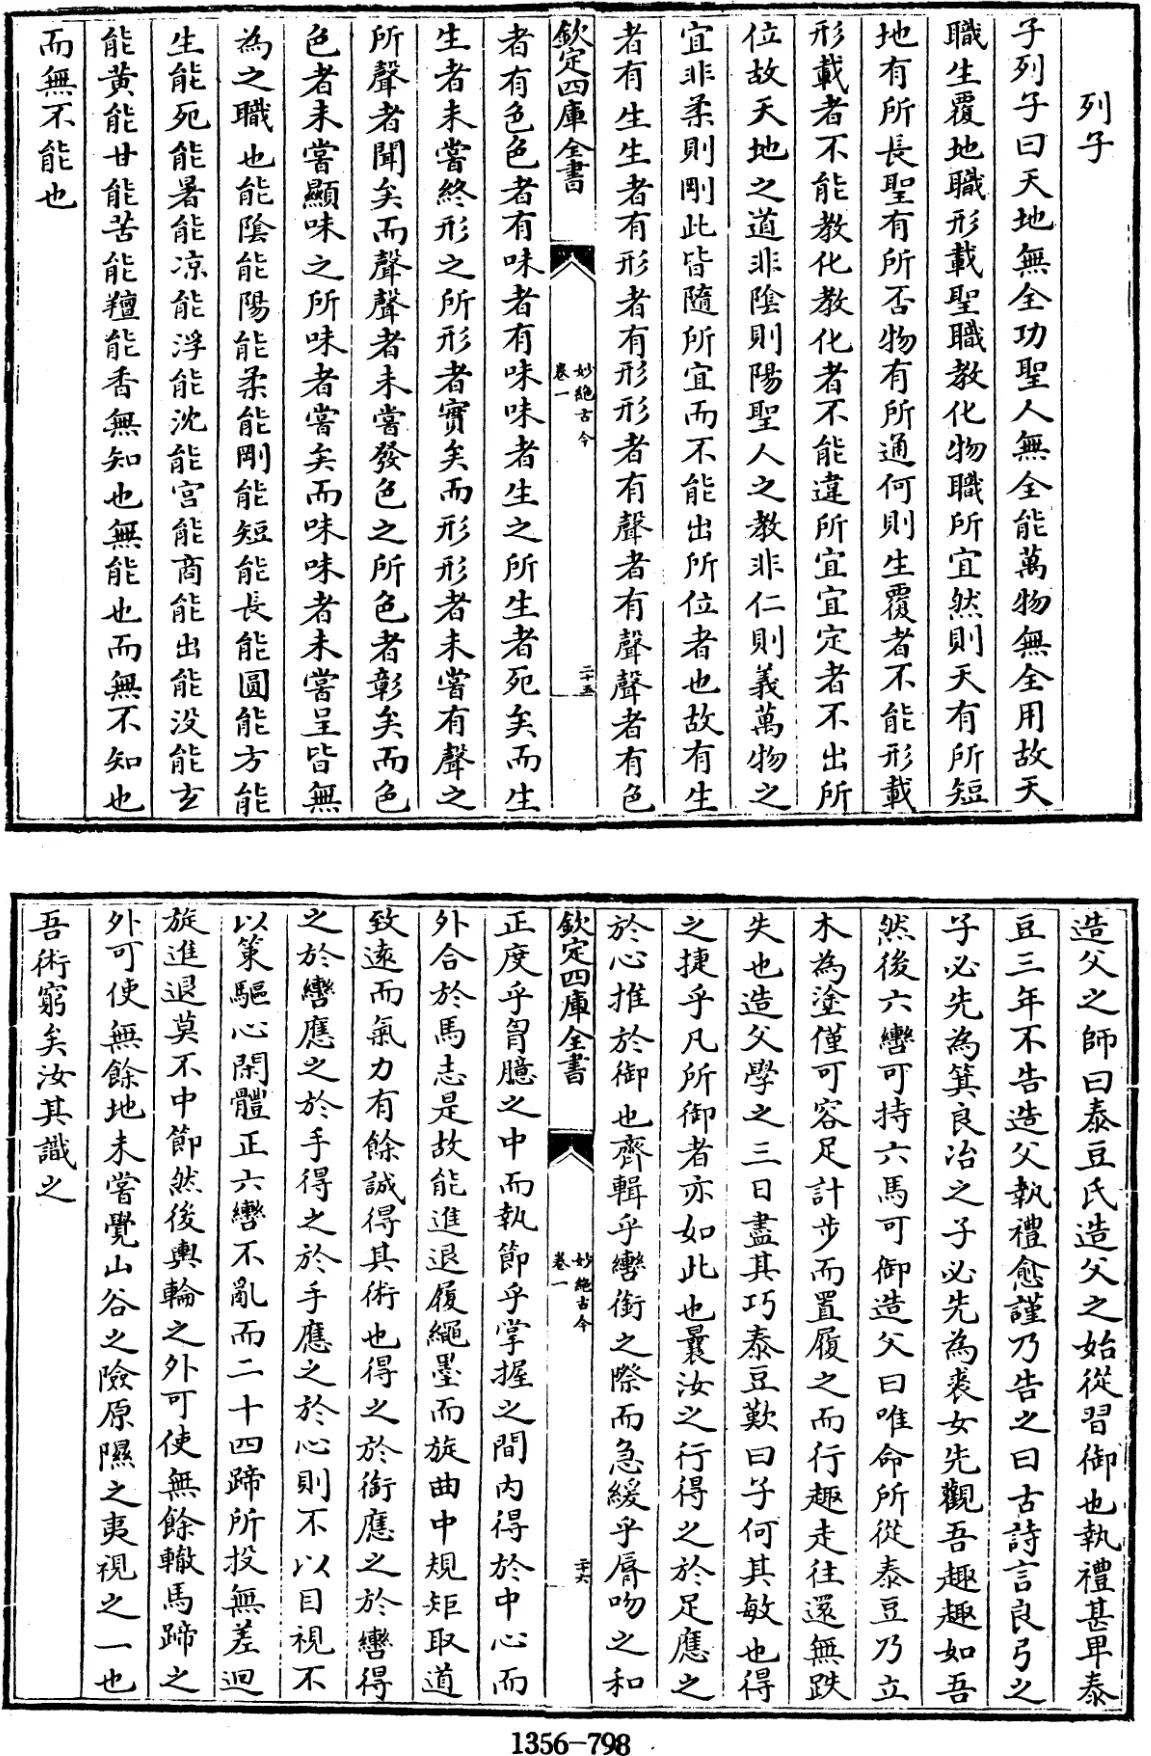 列子
子列子曰天地無全功聖人無全能萬物無全用故天
職生覆地職形載聖職教化物職所宜然則天有所短
地有所長聖有所否物有所通何則生覆者不能形載
形載者不能教化教化者不能違所宜宜定者不出所
位故天地之道非陰則陽聖人之教非仁則義萬物之
宜非柔則剛此皆隨所宜而不能出所位者也故有生
者有生生者有形者有形形者有聲者有聲聲者有色
欽定四庫全書
妙絶古今
卷一
二十五
者有色色者有味者有味味者生之所生者死矣而生
生者未嘗終形之所形者實矣而形形者未嘗有聲之
所聲者聞矣而聲聲者未嘗發色之所色者彰矣而色
色者未嘗顯味之所味者嘗矣而味味者未嘗呈皆無
為之職也能陰能陽能柔能剛能短能長能圓能方能
生能死能暑能凉能浮能沈能宫能商能出能没能𤣥
能黄能甘能苦能羶能香無知也無能也而無不知也
而無不能也
造父之師曰泰豆氏造父之始從習御也執禮甚卑泰
豆三年不告造父執禮愈謹乃告之曰古詩言良弓之
子必先為箕良冶之子必先為裘女先觀吾趣趣如吾
然後六轡可持六馬可御造父曰唯命所從泰豆乃立
木為塗僅可容足計步而置履之而行趣走往還無跌
失也造父學之三日盡其巧泰豆歎曰子何其敏也得
之捷乎凡所御者亦如此也曩汝之行得之於足應之
於心推於御也齊輯乎轡銜之際而急緩乎脣吻之和
欽定四庫全書
妙絶古今
卷一
二十六
正度乎胷臆之中而執節乎掌握之間内得於中心而
外合於馬志是故能進退履繩墨而旋曲中規矩取道
致遠而氣力有餘誠得其術也得之於銜應之於轡得
之於轡應之於手得之於手應之於心則不以目視不
以策驅心閑體正六轡不亂而二十四蹄所投無差迴
旋進退莫不中節然後輿輪之外可使無餘轍馬蹄之
外可使無餘地未嘗覺山谷之險原隰之夷視之一也
吾術窮矣汝其識之
1356-798